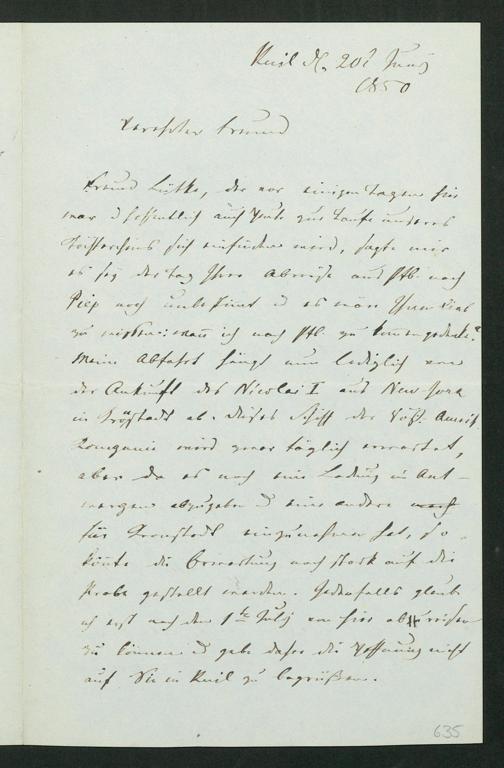 Reval d. 20t Juny
1850
Verehrter Freund
Freund Lütke, der vor einigen Tagen hier
war u hoffentlich auch heute zur Taufe unseres
Töchterchens sich einfinden wird, sagte mir
es sey der Tag Ihrer Abreise aus Ptb. nach
Piep noch unbestimt u es wäre Ihnen lieb
zu wissen: wann ich nach Ptb. zu kommen gedenke?
Meine Abfahrt hängt nun lediglich von
der Ankunft des Nicolai I aus New York
in Kronstadt ab. Dieses Schiff der Amerik.
Compagnie wird zwar täglich erwartet,
aber da es noch eine Ladung in Ant-
werpen abzugeben u eine andere
für Kronstadt einzunehmen hat, so
könnte die Erwartung noch stark auf die
Probe gestellt werden. Jedenfalls glaube
ich erst nach dem 1ten July von hier abreisen
zu können u gebe daher die Hoffnung nicht
auf Sie in Reval zu begrüßen.
635